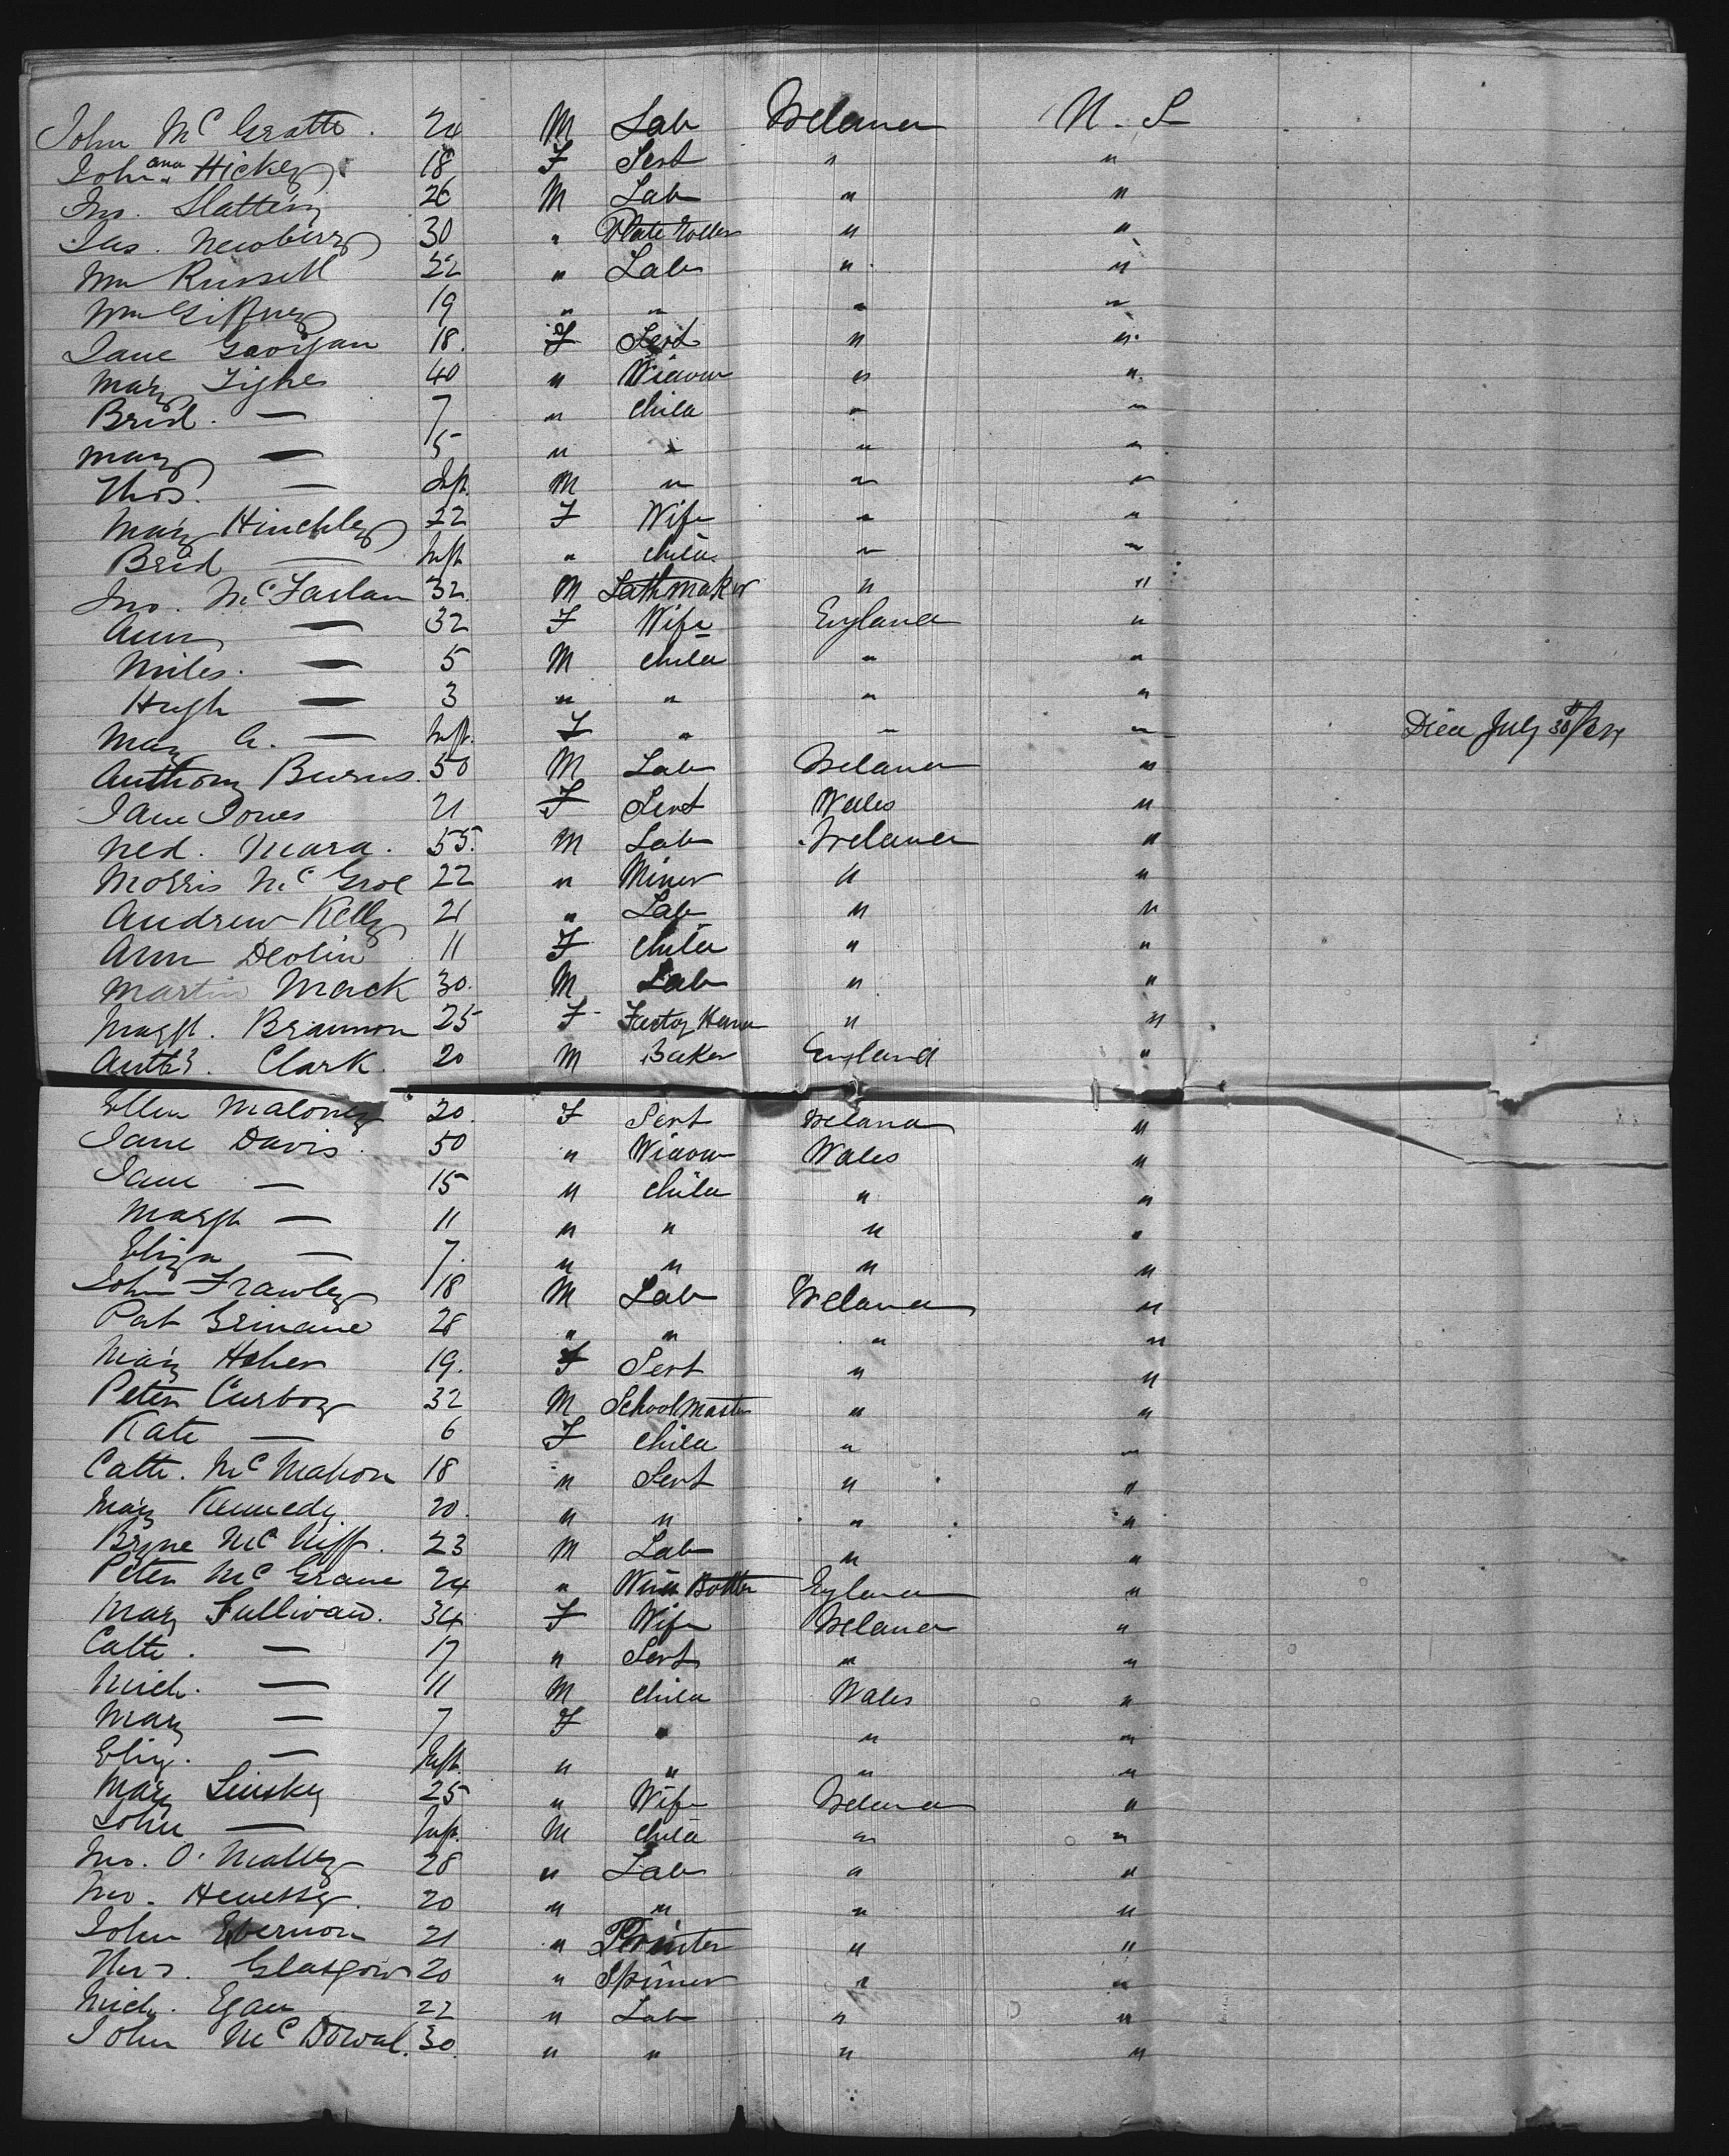 John McGratte. 24 M Lab Ireland U. S
Johnana Hickey 18 F Sert " "
Jno. Slattery 26 M Lab " "
Jas. Newberry 30 " Plate Roller " "
Wm Russell 22 " Lab " "
Wm 19 " " " "
Jane 18. F Sert " "
Mary Tighe 40 " Widow " "
Brid. — 7 " Child " "
Mary — 5 " " " "
Thos. — Inft. M " " "
Mary Hinchley 22 F Wife " "
Brid — Inft " Child " "
Jno. McFarlan 32 M Lathmaker " "
Ann — 32 F Wife England "
Miles. — 5 M Child " "
Hugh — 3 " " " "
Mary A. — Inft. F " " " Died July 30th
Anthony Burns. 50 M Lab Ireland "
Jane Jones 21 F Sert Wales "
Ned. Mara. 55. M Lab Ireland "
Morris McGroe 22 " Miner " "
Andrew Kelly 21 " Lab " "
Ann Devlin 11 F Child " "
Martin Mack 30. M Lab " "
Margt. Brannon 25 F Factory Hand " "
Clark. 20 M Baker England "
Ellen Maloney 20. F Sert Ireland "
Jane Davis. 50 " Widow Wales "
Jane — 15 " Child " "
Margt — 11 " " " "
Eliza — 7. " " " "
John Frawley 18 M Lab Ireland "
Pat Grinane 28 " " " "
Mary Heher 19. F Sert " "
Peter Curboy 32 M Schoolmaster " "
Kate — 6 F Child " "
Cath. McMahon 18 " Sert " "
Mary Kennedy 20. " " " "
Bryne McNiff. 23 M Lab " "
Peter McGrane 24 " England "
Mary Sullivan. 34 F Wife Ireland "
Cath. — 17 " Sert " "
Mich. — 11 M Child Wales "
Mary — 7 F " " "
Eliz. — Inft. " " " "
Mary Linsky 25 " Wife Ireland "
John — Inft. M Child " "
Jno. O'Malley 28 " Lab " "
Jno. Henessy. 20 " " " "
John Evernon 21 " Printer " "
Thos. Glasgow 20 " Spinner " "
Mich. Egan 22 " Lab " "
John McDowal. 30. " " " "